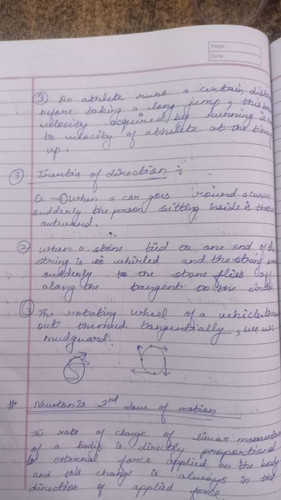 Page:
Date:
③ An athlete runs a certain dista
before taking a long jump, this
velocity acquired by running is
to velocity of athlete at the time
up.
③ Inertia of direction :-
Ex → ① When a car goes round a curve
suddenly the person sitting inside is thro
outward.
② when a stone tied to one end of
string is whirled and the string
suddenly to the stone flies off
along the tangent to the circle
③ The rotating wheel of a vehicle
out tangentially,
mudguard.
# Newton's 2nd law of motion
The rate of change of linear momentum
of a body is directly proportional
to external force applied on the body
and this change is always in the
direction of applied force